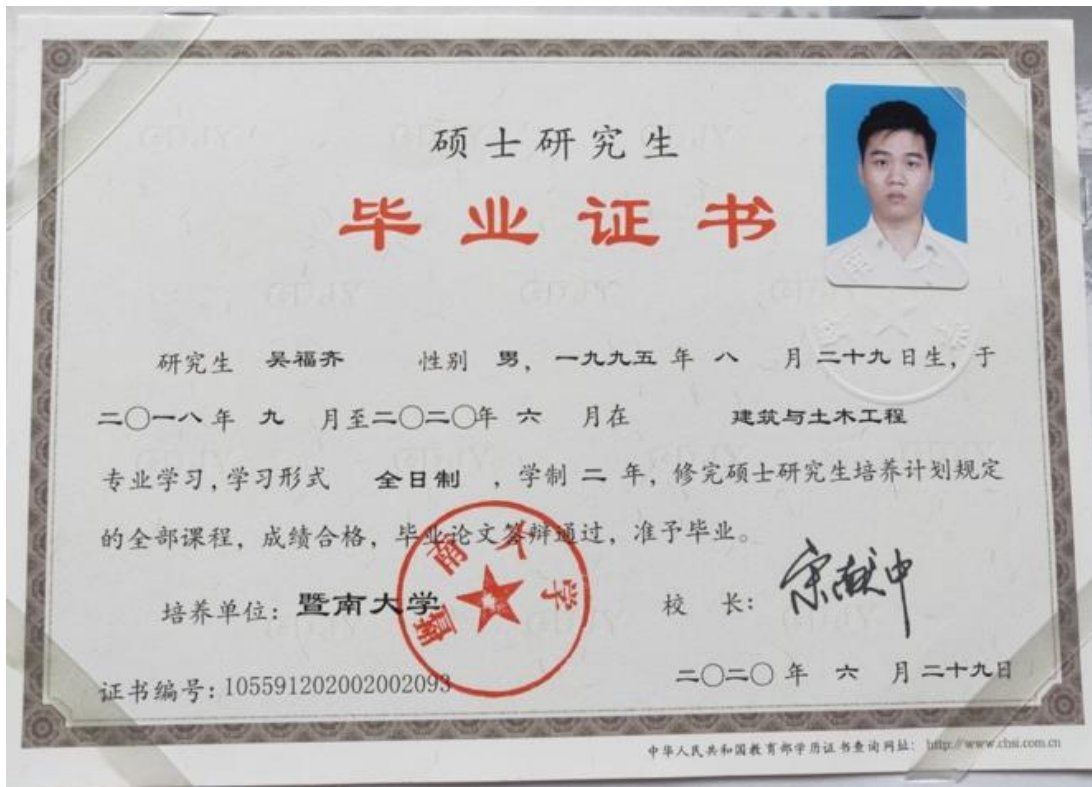 硕士研究生
毕业证书
研究生 吴福齐 性别 男，一九九五 年 八 月 二十九 日生，于
二〇一八年 九 月至二〇二〇年 六 月在 建筑与土木工程
专业学习，学习形式 全日制 ，学制 二 年，修完硕士研究生培养计划规定
的全部课程，成绩合格，毕业论文答辩通过，准予毕业。
培养单位：暨南大学
暨南大学
校 长：宋献中
证书编号：105591202002002093
二〇二〇 年 六 月 二十九日
中华人民共和国教育部学历证书查询网址： http://www.chsi.com.cn